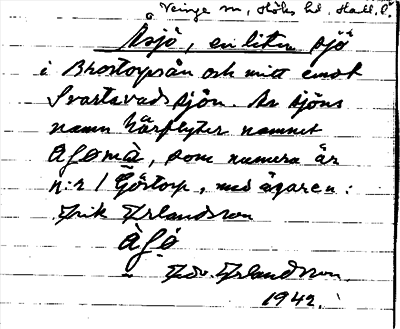 Veinge sn, Höks hd. Hall. l.
Åsjö, en liten sjö
i Brostorpsån och mitt emot
Svartavadsjön. Av sjöns
namn härflyter namnet
Ågomå, som numera är
n:r 1 Göstorp, med ägaren:
Erik Erlandsson
Ågö
Edv. Erlandsson.
1942.